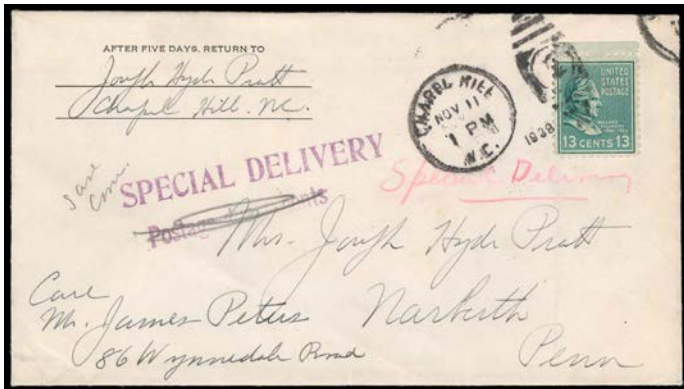 AFTER FIVE DAYS, RETURN TO
Joseph Hyde Pratt
Chapel Hill. N.C.
CHAPEL HILL
NOV 11
1 PM
N.C.
1938
UNITED
STATES
POSTAGE
13 CENTS 13
SPECIAL DELIVERY
Special Delivery
Postage
Mrs. Joseph Hyde Pratt
Care
Mr. James Peters
Narberth
86 Wynnedale Road
Penn